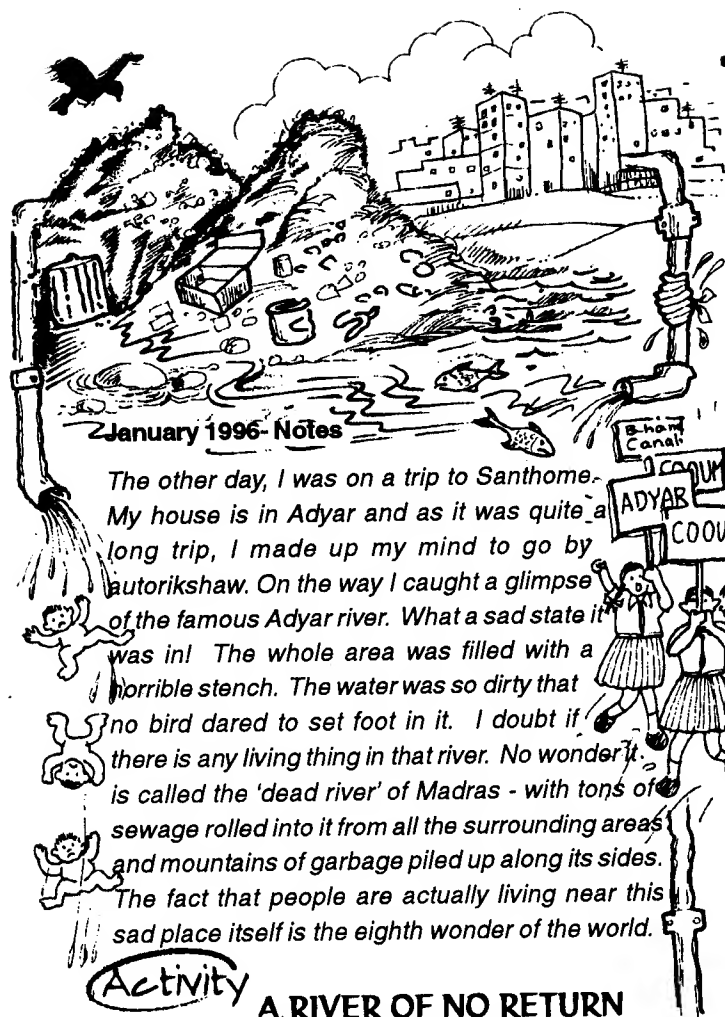 January 1996- Notes
The other day, I was on a trip to Santhome.
My house is in Adyar and as it was quite a
long trip, I made up my mind to go by
autorikshaw. On the way I caught a glimpse
of the famous Adyar river. What a sad state it
was in! The whole area was filled with a
horrible stench. The water was so dirty that
no bird dared to set foot in it. I doubt if
there is any living thing in that river. No wonder it
is called the 'dead river' of Madras - with tons of
sewage rolled into it from all the surrounding areas
and mountains of garbage piled up along its sides.
The fact that people are actually living near this
sad place itself is the eighth wonder of the world.
Canal
COOUM
ADYAR
COOU
Activity
A RIVER OF NO RETURN